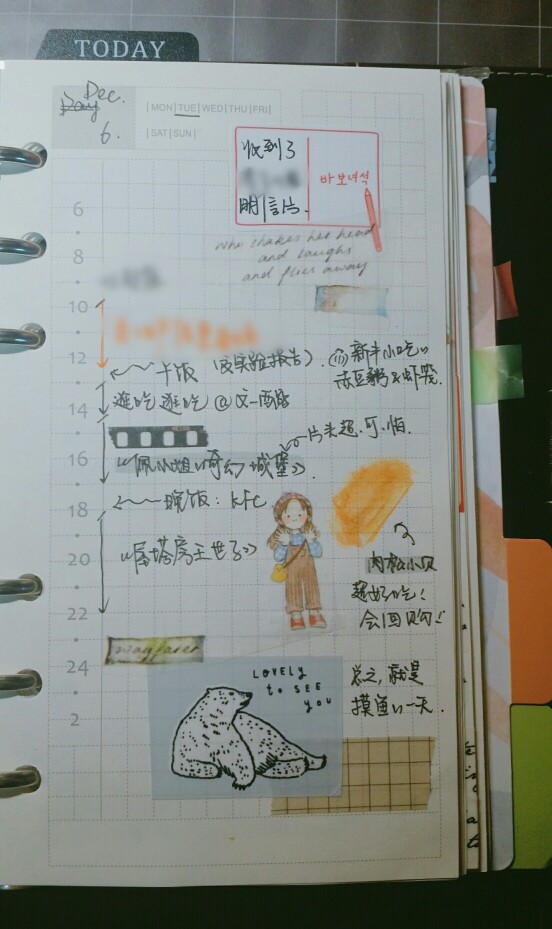 TODAY
Dec.
Day
6.
|MON|TUE|WED|THU|FRI|
|SAT|SUN|
收到了
明信片.
바보녀석
who shakes her head
and laughs
and flies away
6
8
10
12
14
16
18
20
22
24
2
午饭 (交实验报告).
新丰小吃
赤豆粥&虾笼.
逛吃逛吃@文一西路
片头超.可.怕.
《佩小姐的奇幻城堡》.
晚饭:KFC
《屋塔房王世子》
肉松小贝
超好吃!
会回购!
wayfarer
LOVELY
to SEE
you
总之,就是
摸鱼的一天.